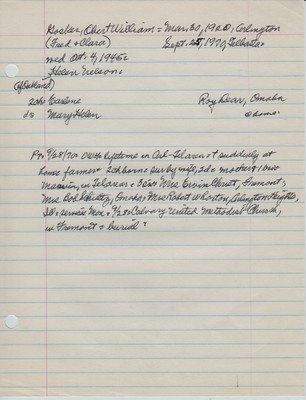 Gosker, Obert William = Mar. 30, 1920, Arlington
(Fred = Clara) Sept. 25, 1970, Telbasta.
md Oct. 4, 1945
Helen Nelson.
(of Oakland)
2ch: Earlene Roy Dear, Omaha
d: Mary Helen ✓ home.
Pr. 9/28/70: life time in Arl-Telbasta = suddenly at
home farmer = 2ch born = sur by wife, 2d = mother; bro
in Telbasta = 3sis: Mrs. Ervin Ehrust, Fremont;
Mrs. Bob Schultz, Omaha; Mrs. Robert Wharton, Arlington Heights,
Ill = services Mon. = 9/28 Calvary United Methodist Church,
in Fremont = burial ?